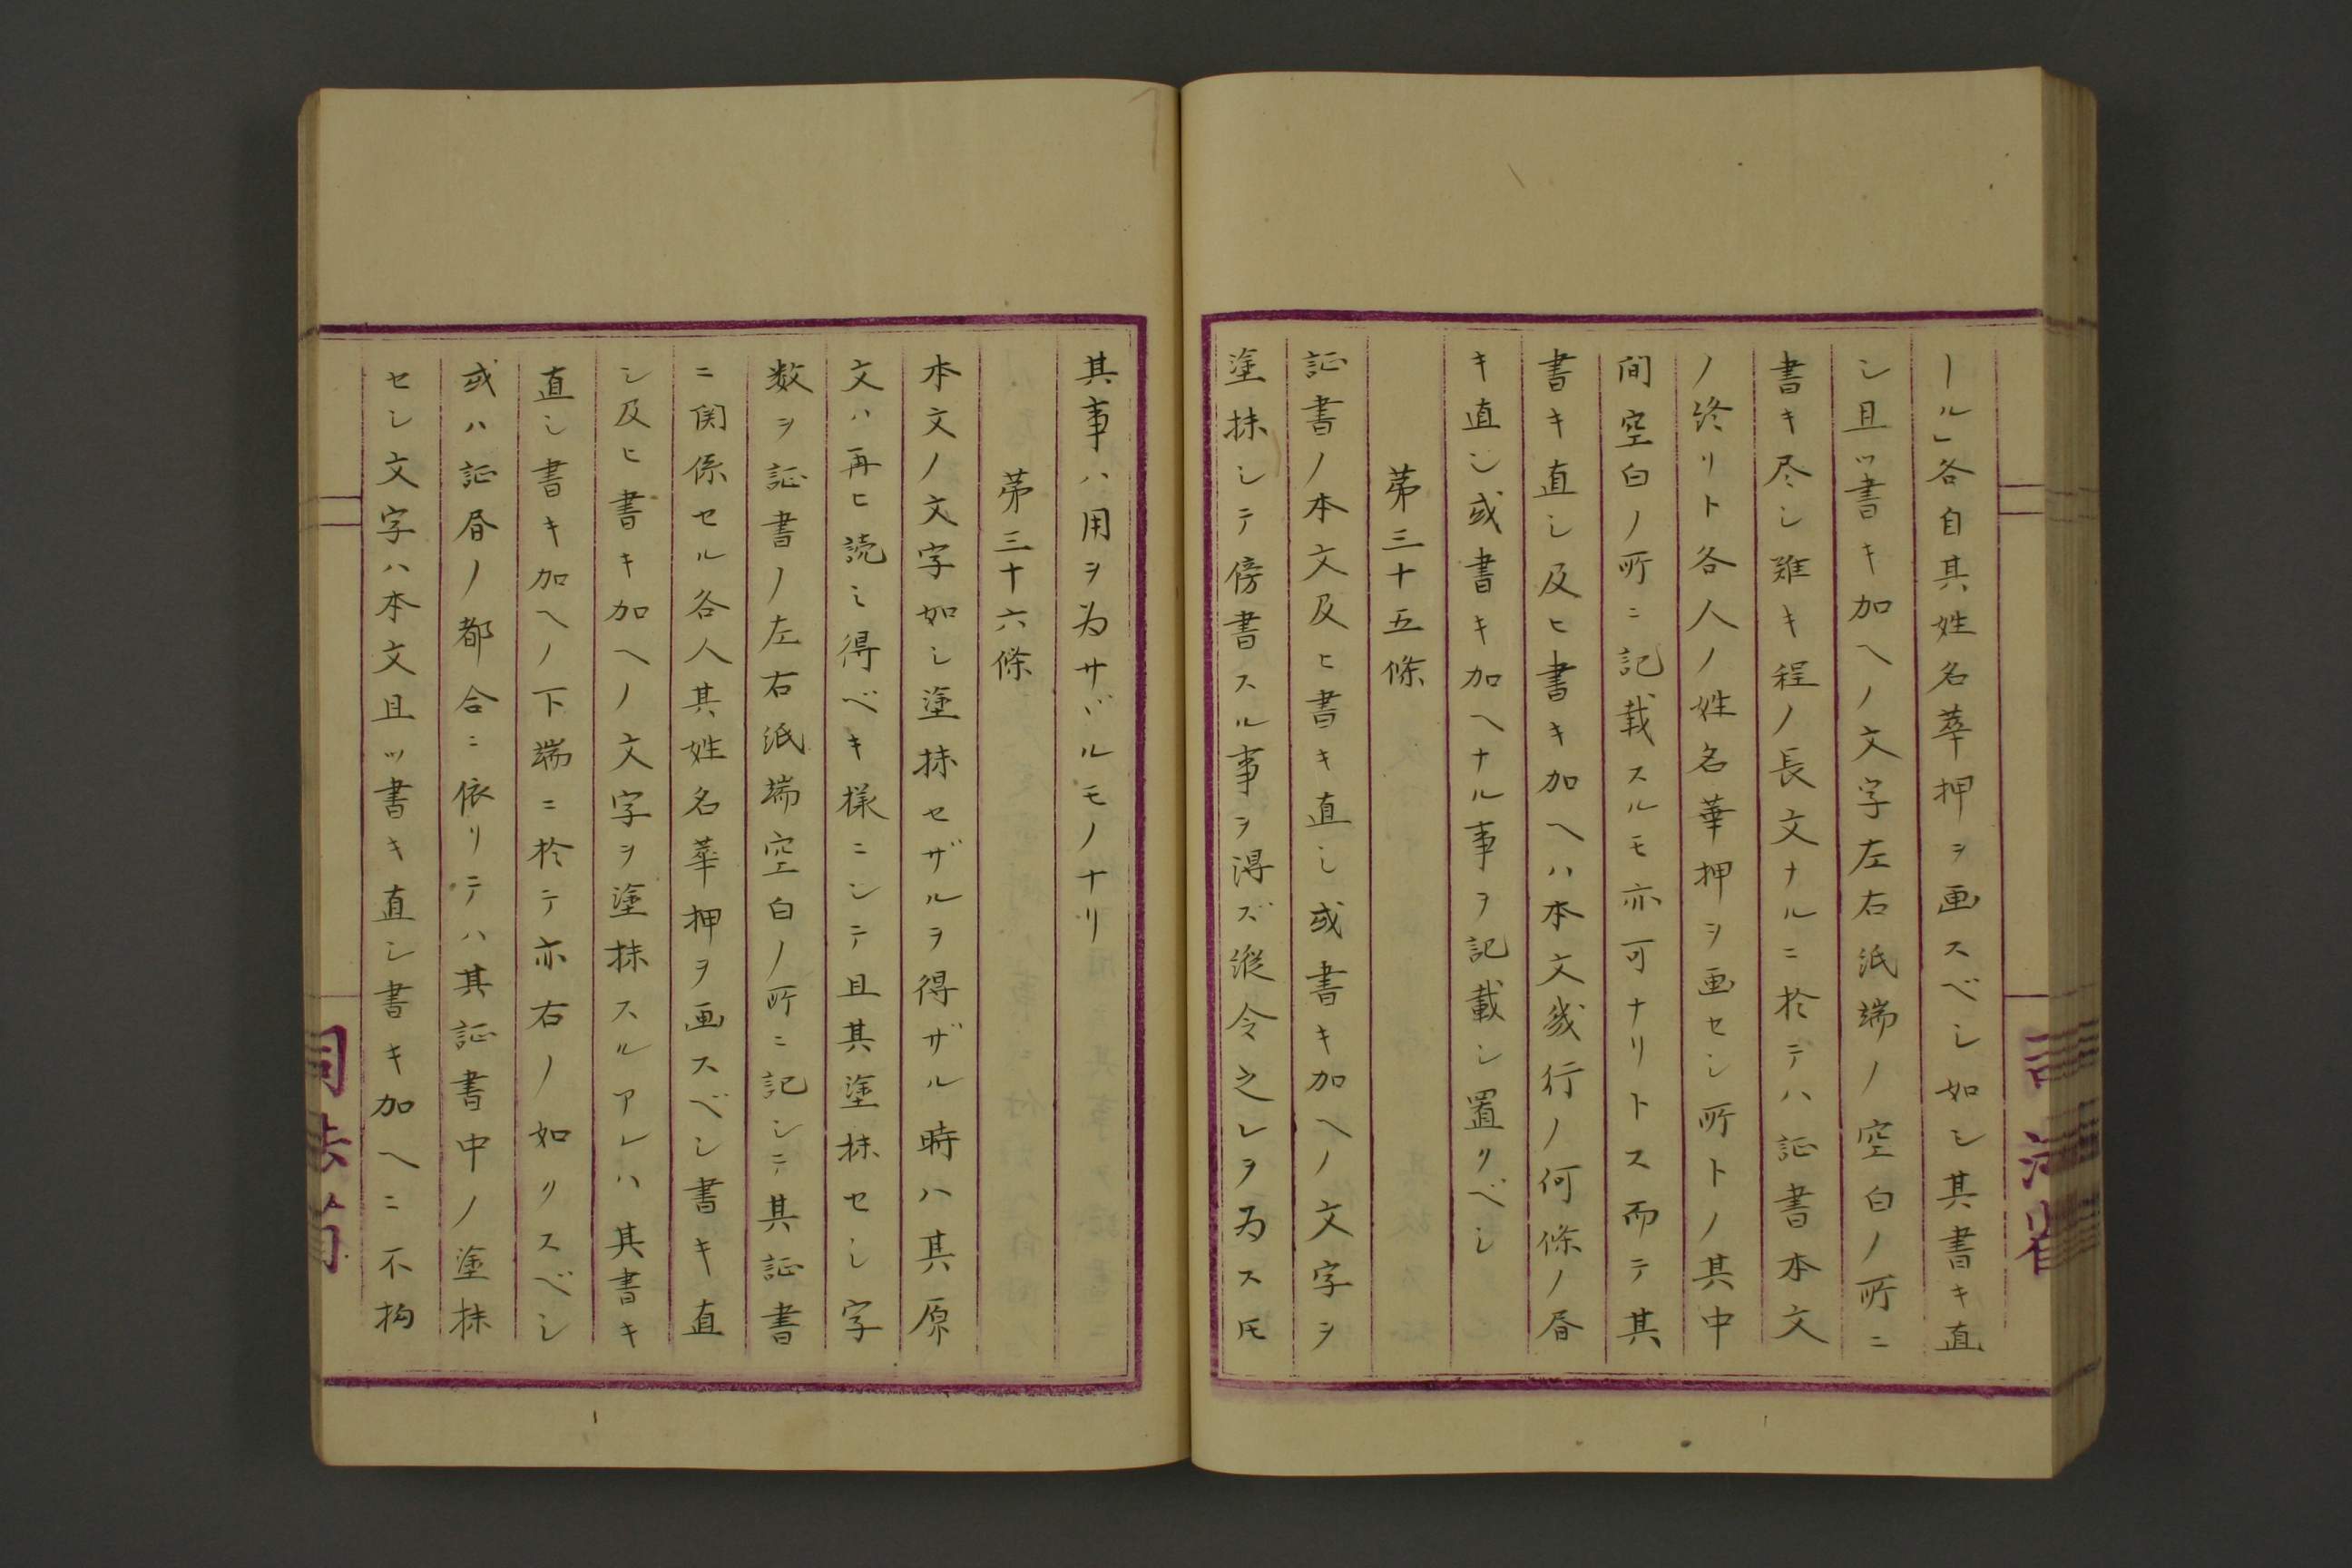 ール」各自其姓名華押ヲ画スベシ如シ其書キ直
シ且ツ書キ加ヘノ文字左右紙端ノ空白ノ所ニ
書キ尽シ難キ程ノ長文ナルニ於テハ証書本文
ノ終リト各人ノ姓名華押ヲ画セシ所トノ其中
間空白ノ所ニ記載スルモ亦可ナリトス而テ其
書キ直シ及ヒ書キ加ヘハ本文幾行ノ何條ノ昼
キ直シ或書キ加ヘナル事ヲ記載シ置クベシ
第三十五條
証書ノ本文及ヒ書キ直シ或書キ加ヘノ文字ヲ
塗抹シテ傍書スル事ヲ得ズ縦令之レヲ為ス𪜈
其事ハ用ヲ為サヾルモノナリ
第三十六條
本文ノ文字如シ塗抹セザルヲ得ザル時ハ其原
文ハ再ヒ読ミ得ベキ様ニシテ且其塗抹セシ字
数ヲ証書ノ左右紙端空白ノ所ニ記シテ其証書
ニ関係セル各人其姓名華押ヲ画スベシ書キ直
シ及ヒ書キ加ヘノ文字ヲ塗抹スルアレハ其書キ
直シ書キ加ヘノ下端ニ於テ亦右ノ如クスベシ
或ハ証昼ノ都合ニ依リテハ其証書中ノ塗抹
セシ文字ハ本文且ツ書キ直シ書キ加ヘニ不拘
司法省
司法省